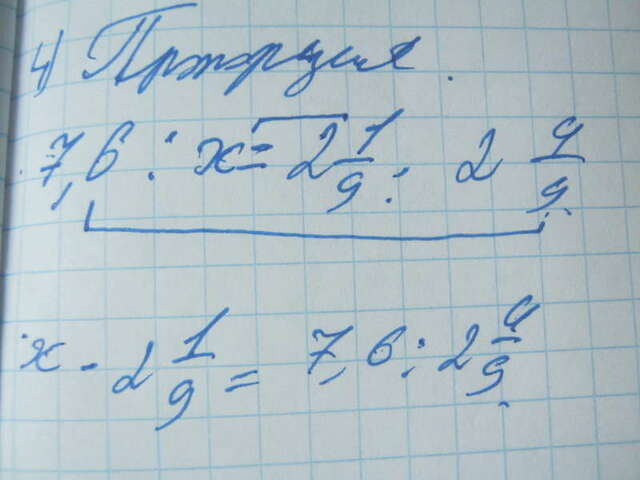 4) Пропорция.
7,6 : x = 2 1/9 : 2 4/9
x - 2 1/9 = 7,6 : 2 4/9